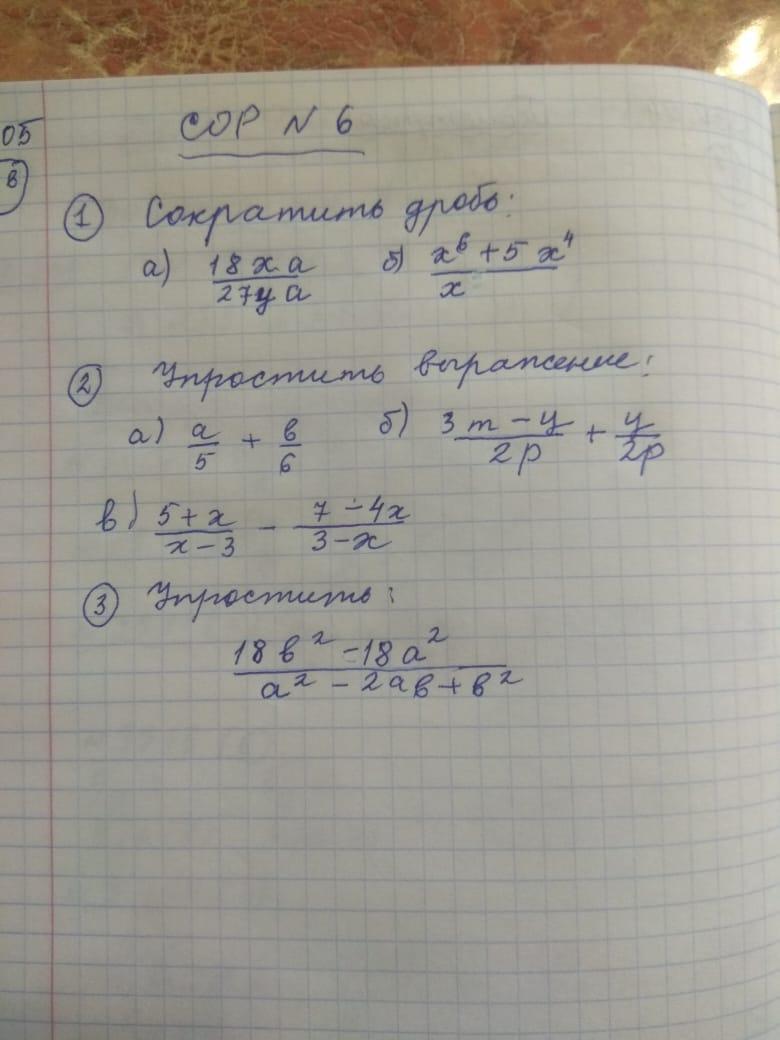 05
в
СОР N 6
① Сократить дробь:
а) 18xa/27ya б) x⁶+5x⁴/x
② Упростить выражение:
а) a/5 + в/6 б) 3m-y/2p + y/2p
в) 5+x/x-3 - 7-4x/3-x
③ Упростить:
18в²-18a²/a²-2aв+в²